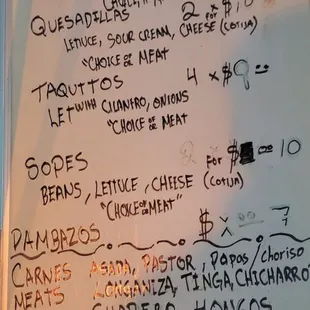 QUESADILLAS 2 FOR $
LETUCE, SOUR CREAM, CHEESE (COTIJA)
"CHOICE OF MEAT
TAQUITOS 4 x $9
LET WITH CILANTRO, ONIONS
"CHOICE OF MEAT
SOPES 2 FOR $ 10
BEANS, LETTUCE, CHEESE (COTIJA)
"CHOICE OF MEAT"
PAMBAZOS $
CARNES ASADA, PASTOR, PAPAS/choriso
MEATS LONGANIZA, TINGA, CHICHARRO
HONGOS